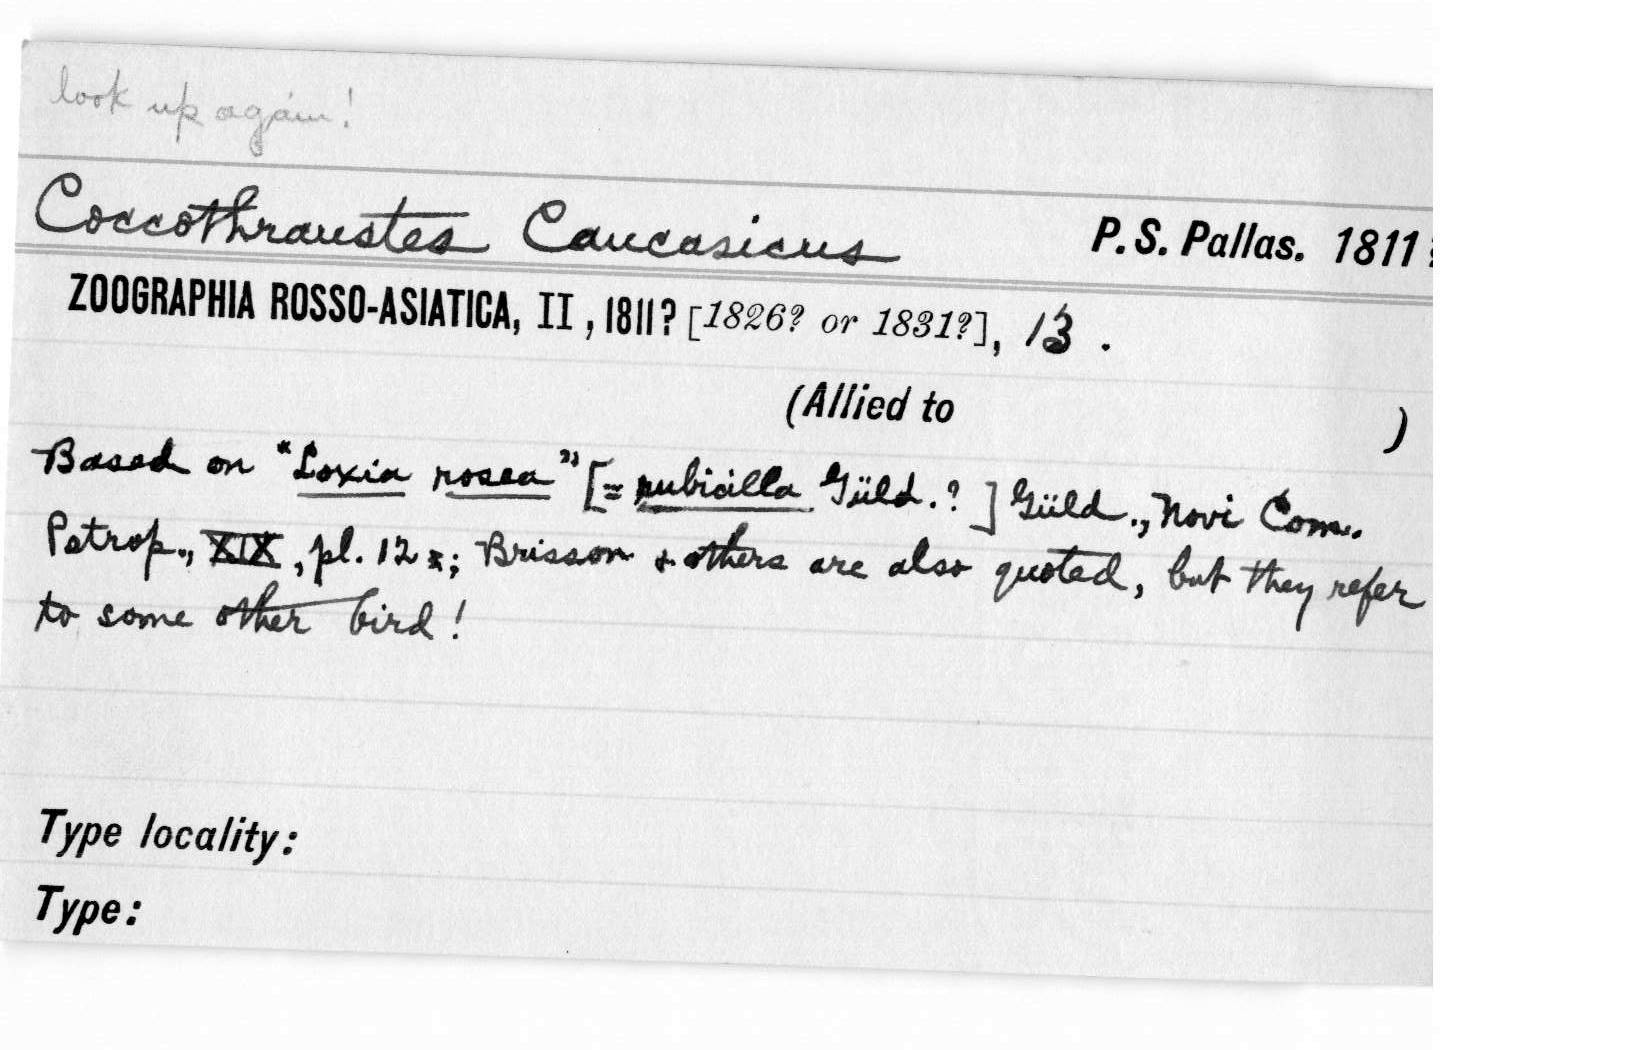 look up again!
Coccothraustes Caucasicus P. S. Pallas. 1811?
ZOOGRAPHIA ROSSO-ASIATICA, II, 1811? [1826? or 1831?], 13.
(Allied to )
Based on "Loxia rosea" [= rubicilla Güld.?] Güld., Novi Com.
Petrop., XIX, pl. 12; Brisson + others are also quoted, but they refer
to some other bird!
Type locality:
Type: